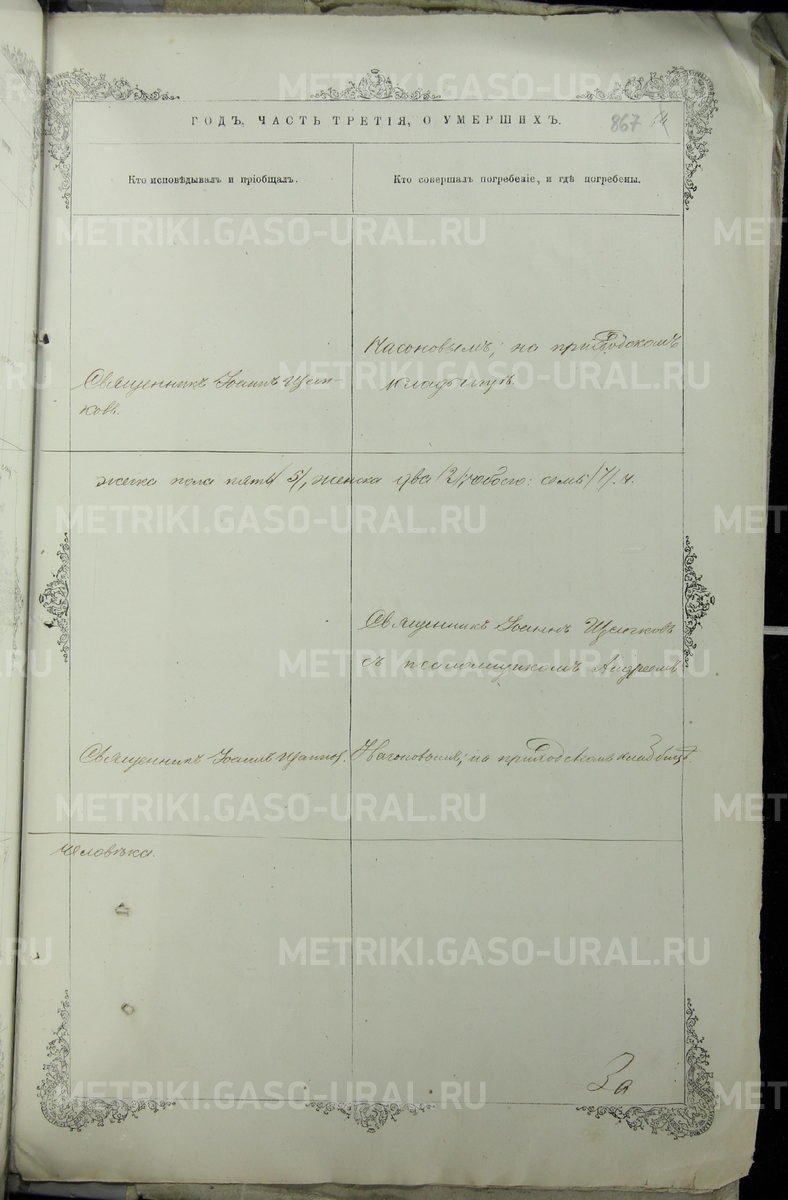 ГОДЪ, ЧАСТЬ ТРЕТІЯ, О УМЕРШИХЪ.
867
Кто исповѣдывалъ и пріобщалъ.
Кто совершалъ погребеніе, и гдѣ погребены.
Насоновымъ; на приходскомъ
кладбищѣ.
Священникъ Іоаннъ
ковъ.
жеска пола пять /5/, женска два /2/, обоего: семь /7/. ч.
Священникъ Іоаннъ
съ псаломщикомъ Андреемъ
Священникъ Іоаннъ
Насоновымъ; на приходскомъ кладбищѣ.
Человѣка.
За
METRIKI.GASO-URAL.RU